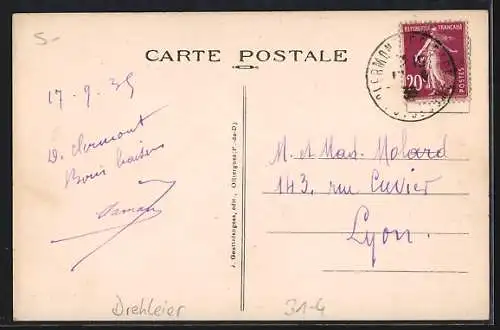 5-
CARTE POSTALE
RÉPUBLIQUE FRANÇAISE
20c
POSTES
CLERMONT
17-9-35
D. Clermont
Bons baisers
Maman
J. Gouttefangeas, édit., Olliergues (P.-de-D.)
M. et Mad. Molard
143, rue Cuvier
Lyon.
Drehleier
31-4